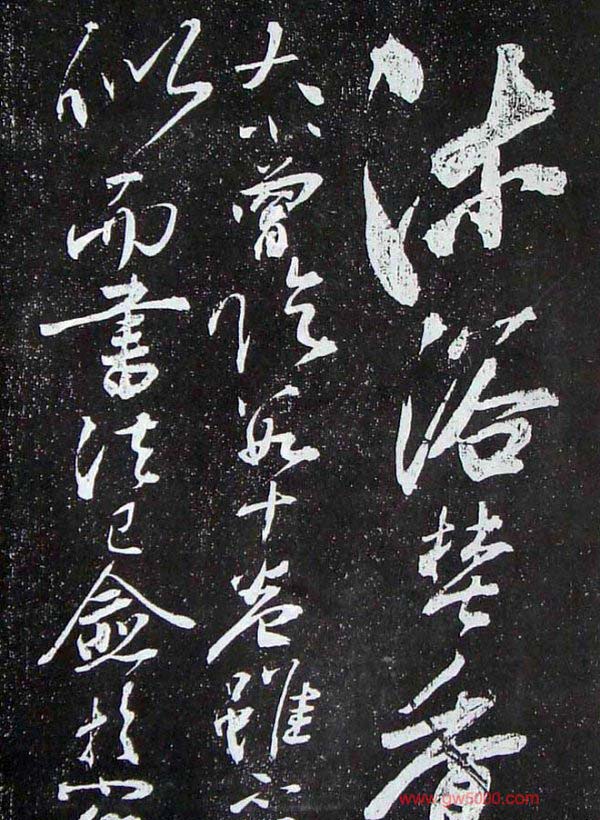 沐浴焚香
大小曾臨數十卷雖不
似而書法已於
www.gw5000.com